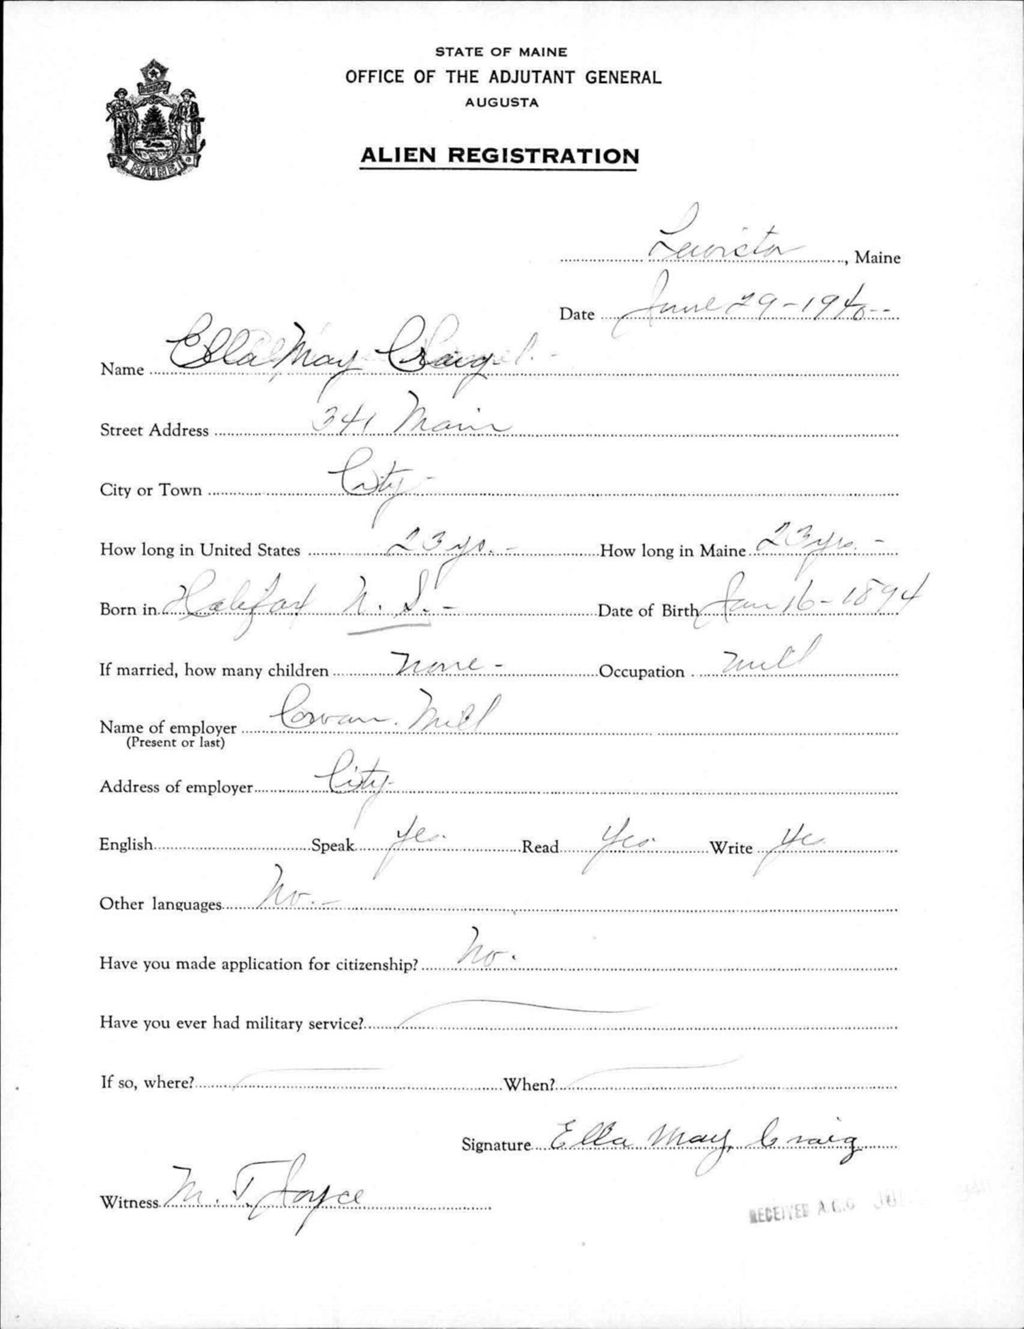 STATE OF MAINE
OFFICE OF THE ADJUTANT GENERAL
AUGUSTA
ALIEN REGISTRATION
MAINE
Lewiston, Maine
Date June 29-1940--
Name Ella May Craig
Street Address 341 Main
City or Town City-
How long in United States 23 yrs. - How long in Maine 23 yrs. -
Born in Halifax N. S. - Date of Birth Jan 16-1894
If married, how many children None - Occupation Mill
Name of employer Cowan Mill
(Present or last)
Address of employer City-
English Speak Yes. Read Yes. Write Yes
Other languages No. -
Have you made application for citizenship? No.
Have you ever had military service?
If so, where? When?
Signature Ella May Craig
Witness M. T. Joyce
RECEIVED A.G.O